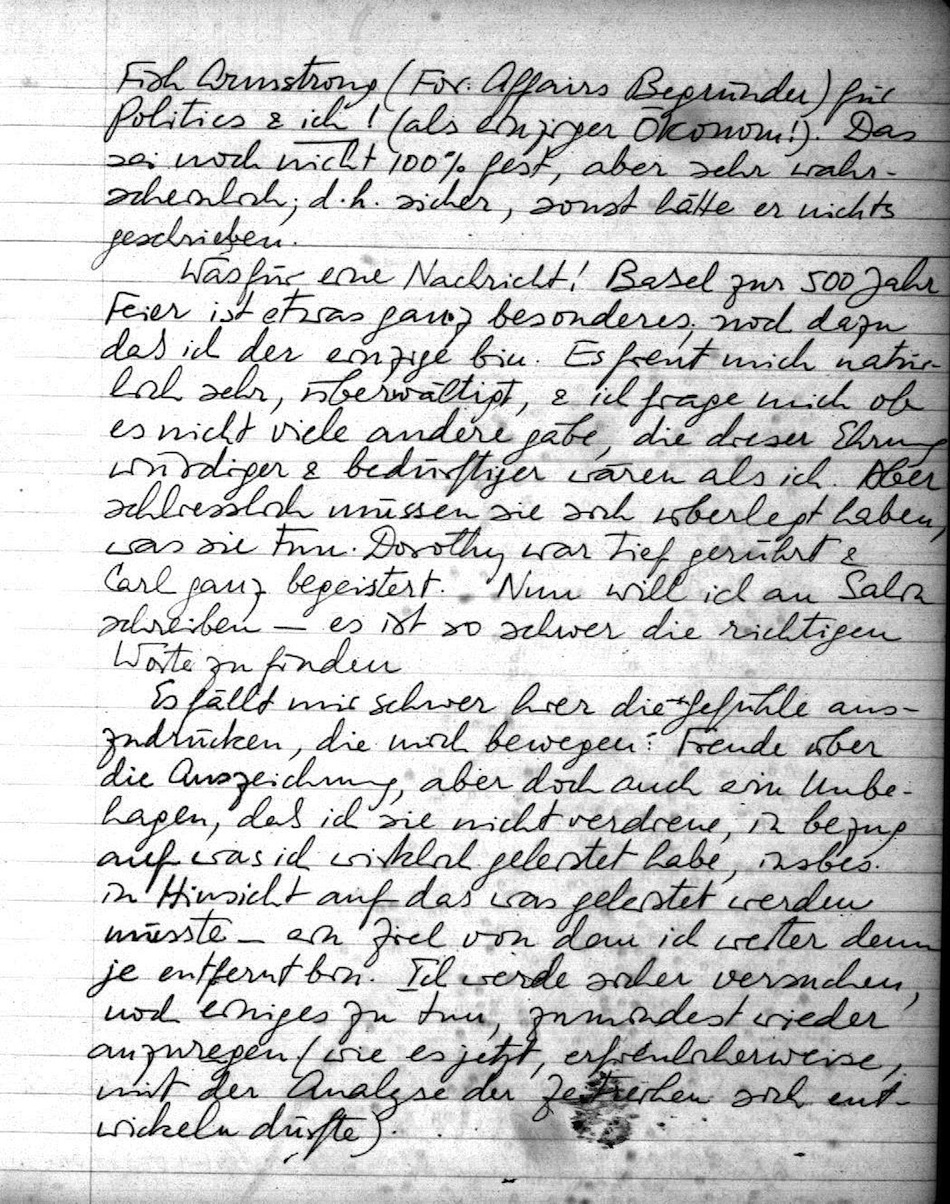 Fish Armstrong (For. Affairs Begründer) für
Politics & ich! (als einziger Ökonom!). Das
sei noch nicht 100% fest, aber sehr wahr-
scheinlich; d.h. sicher, sonst hätte er nichts
geschrieben.
Was für eine Nachricht! Basel zur 500 Jahr
Feier ist etwas ganz besonderes, noch dazu
das ich der einzige bin. Es freut mich natür-
lich sehr, überwältigt, & ich frage mich ob
es nicht viele andere gäbe, die dieser Ehrung
würdiger & bedürftiger wären als ich. Aber
schliesslich müssen sie sich überlegt haben,
was sie tun. Dorothy war tief gerührt &
Carl ganz begeistert. Nun will ich an Salin
schreiben — es ist so schwer die richtigen
Worte zu finden
Es fällt mir schwer hier die Gefühle aus-
zudrücken, die mich bewegen: Freude über
die Auszeichnung, aber doch auch ein Unbe-
hagen, das ich sie nicht verdiene, in bezug
auf was ich wirklich geleistet habe, insbes.
in Hinsicht auf das was geleistet werden
müsste — ein Ziel von dem ich weiter denn
je entfernt bin. Ich werde sicher versuchen,
noch einiges zu tun, zumindest wieder
anzuregen (wie es jetzt, erfreulicherweise,
mit der Analyse der Zeitreihen sich ent-
wickeln dürfte).